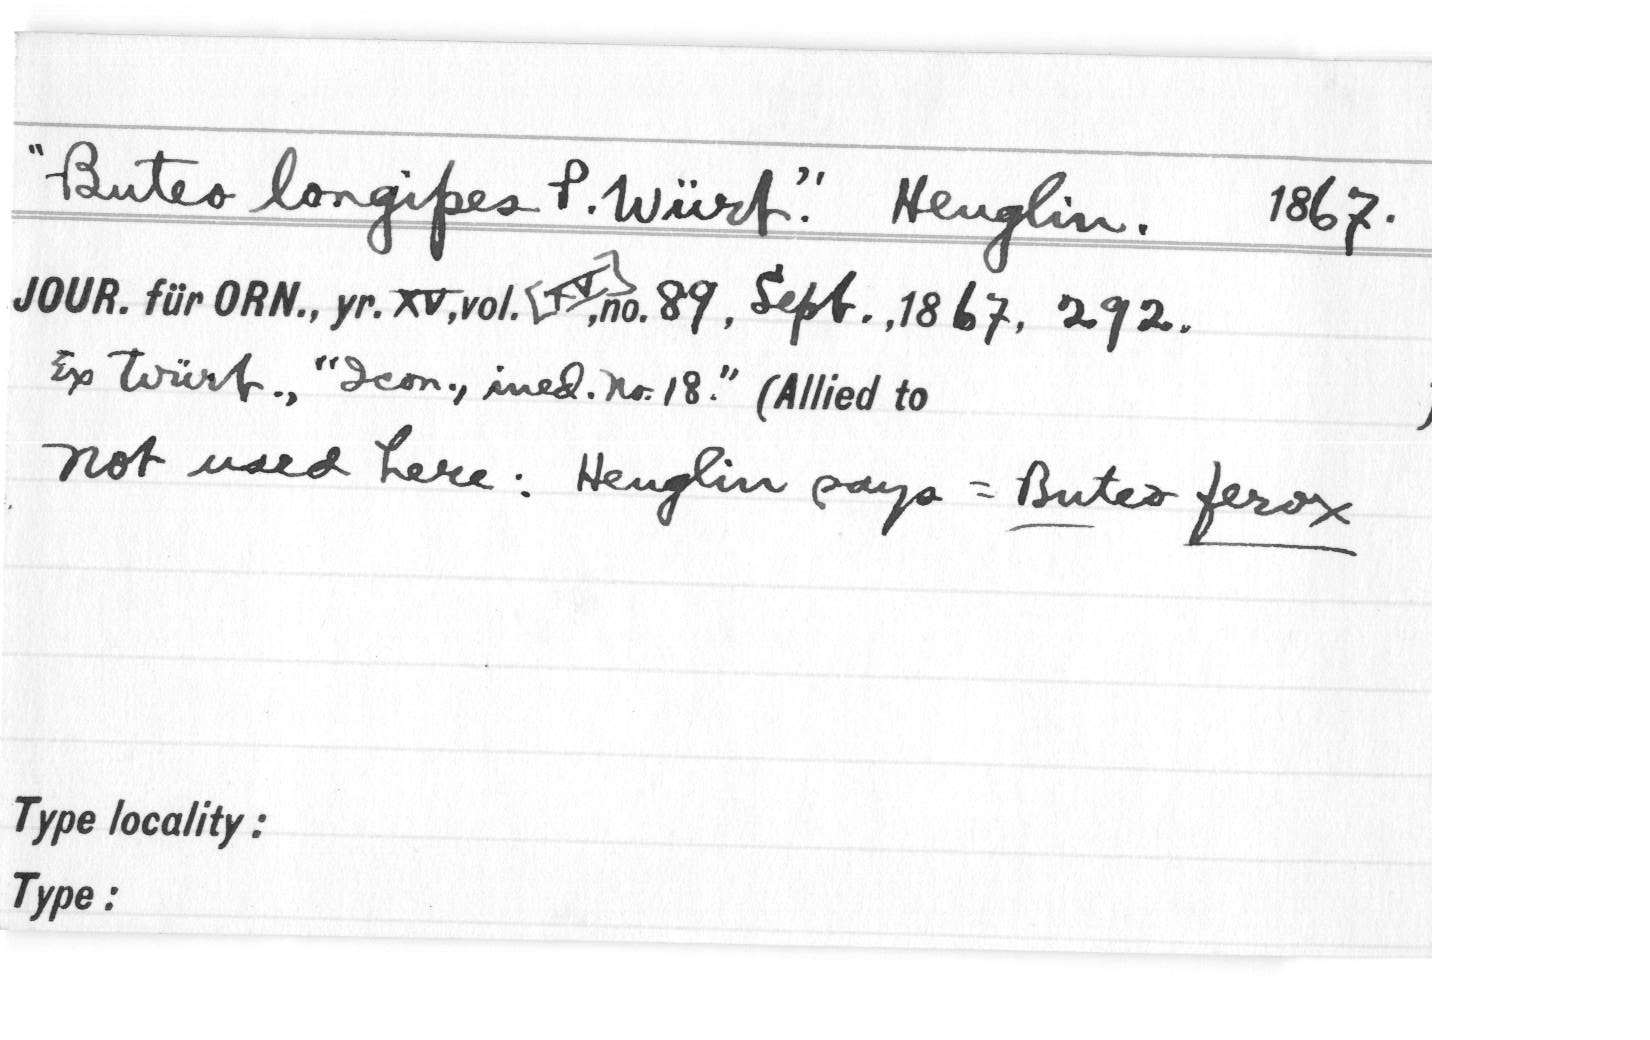 "Buteo longipes P. Würt." Heuglin. 1867.
JOUR. für ORN., yr. XV, vol. [XV], no. 89, Sept., 1867, 292.
Ex Würt., "Icon., ined. No. 18." (Allied to )
Not used here: Heuglin says = Buteo ferox
Type locality:
Type: